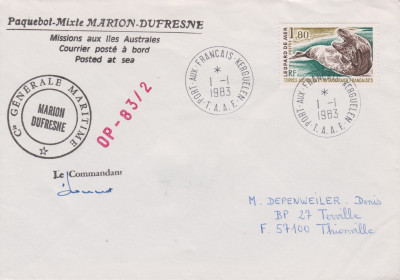 Paquebot-Mixte MARION-DUFRESNE
Missions aux Iles Australes
Courrier posté à bord
Posted at sea
Cie GÉNÉRALE MARITIME
MARION
DUFRESNE
OP-83/2
Le Commandant
PORT-AUX-FRANCAIS-KERGUELEN
*
1-1
1983
T.A.A.F.
1,80
LEOPARD DE MER
RF
POSTES
TERRES AUSTRALES ET ANTARCTIQUES FRANÇAISES
PORT-AUX-FRANCAIS-KERGUELEN
*
1-1
1983
T.A.A.F.
M. DEPENWEILER Denis
BP 27 Terville
F. 57100 Thionville